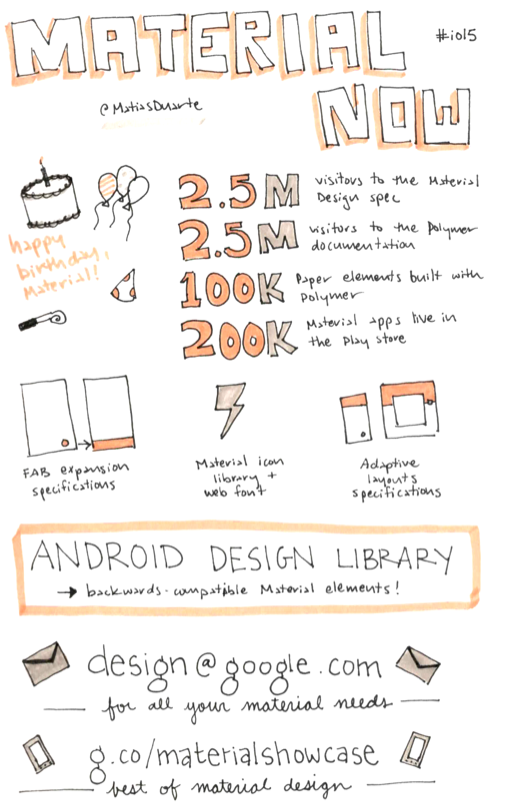 MATERIAL
#io15
NOW
@MatiasDuarte
2.5M visitors to the Material
Design spec
2.5M visitors to the Polymer
documentation
happy
birthday,
Material!
100K Paper elements built with
Polymer
200K Material apps live in
the Play store
FAB expansion
specifications
Material icon
library +
web font
Adaptive
layouts
specifications
ANDROID DESIGN LIBRARY
→ backwards-compatible Material elements!
design@google.com
for all your material needs
g.co/materialshowcase
best of material design